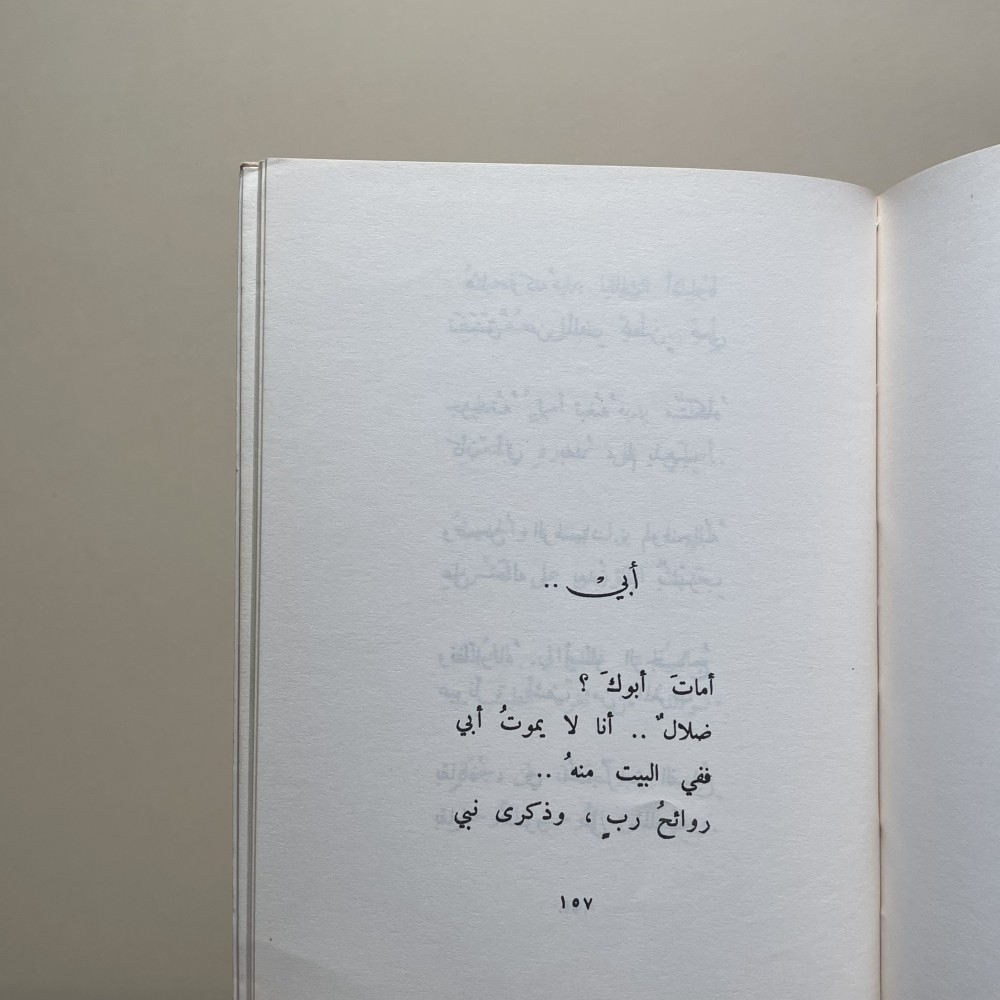 أبيْ ..
أماتَ أبوكَ ؟
ضلالٌ .. أنا لا يموتُ أبي
ففي البيت منهُ ..
روائحُ ربٍ ، وذكرى نبي
١٥٧